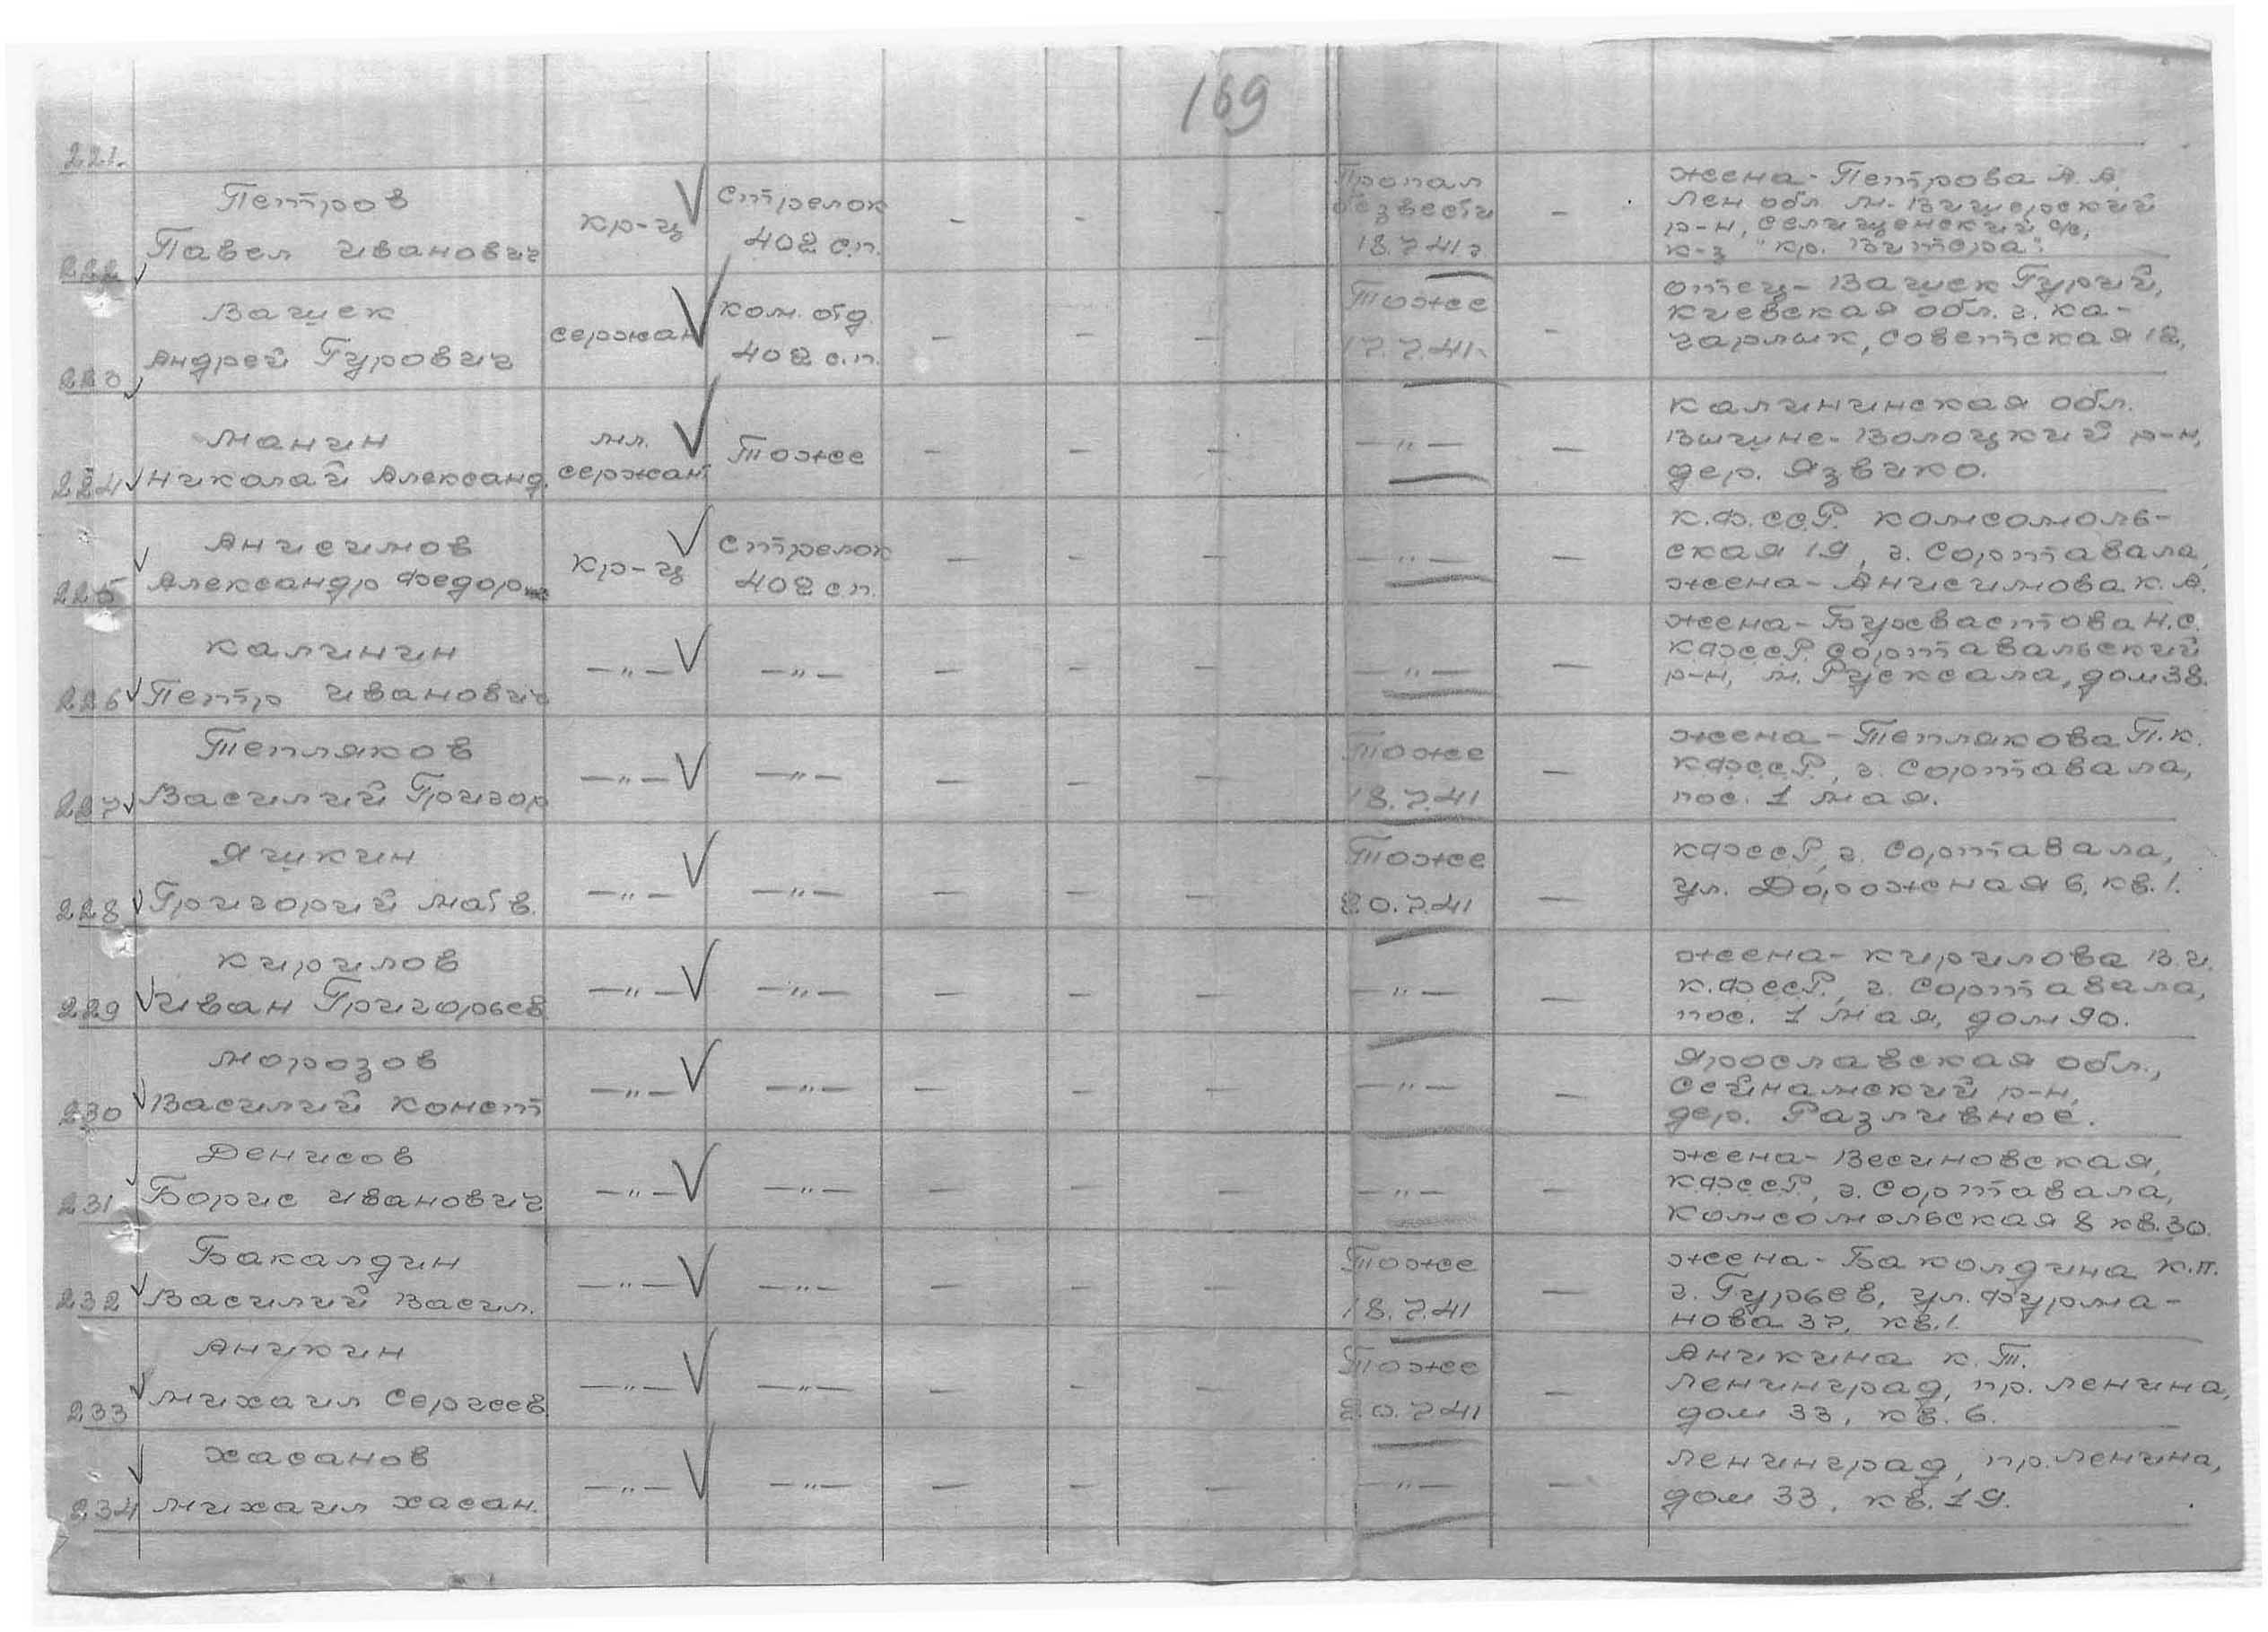 169
221.
Петров
Павел Иванович
кр-ц
Стрелок
402 с.п.
-
-
-
Пропал
безвести
18.7.41г
-
жена - Петрова А.А.
Лен обл. М-Вишерский
р-н, Селищенский с/с,
к-з "Кр. Витера".
222
Вашек
Андрей Гурович
сержан
ком. отд.
402 с.п.
-
-
-
Тоже
17.7.41.
-
отец - Вашек Гурий,
Киевская обл. г. Ка-
гарлык, Советская 12,
223
Манин
Николай Александ.
мл.
сержан
Тоже
-
-
-
-"-
Калининская обл.
Вышне-Волоцкий р-н,
дер. Язвико.
224
Анисимов
Александр Федор
кр-ц
Стрелок
402 с.п.
-
-
-
-"-
-
К.Ф.ССР. Комсомоль-
ская 19, г. Сортавала,
жена - Анисимова К.А.
225
Калинин
Петр Иванович
-"-
-"-
-
-
-
-"-
-
жена - Бухвастова Н.С.
КФССР. Сортавальский
р-н, м. Рускеала, дом 38.
226
Тепляков
Василий Григор
-"-
-"-
-
-
-
Тоже
18.7.41
-
жена - Теплякова П.К.
КФССР, г. Сортавала,
пос. 1 мая.
227
Яшкин
Григорий Матв.
-"-
-"-
-
-
-
Тоже
20.7.41
-
КФССР, г. Сортавала,
ул. Дорожная 6, кв. 1.
228
Кирилов
Иван Григорьев
-"-
-"-
-
-
-
-"-
-
жена - Кирилова В.И.
К.ФССР, г. Сортавала,
пос. 1 мая, дом 90.
229
Морозов
Василий Конст
-"-
-"-
-
-
-
-"-
-
Ярославская обл.,
Сейнамский р-н,
дер. Разливное.
230
Денисов
Борис Иванович
-"-
-"-
-
-
-
-"-
-
жена - Весиновская,
КФССР, г. Сортавала,
Комсомольская 8 кв. 30.
231
Бакалдин
Василий Васил.
-"-
-"-
-
-
-
Тоже
18.7.41
-
жена - Баколдина К.П.
г. Гурьев, ул. Фурма-
нова 37, кв. 1.
232
Аникин
Михаил Сергеев
-"-
-"-
-
-
-
Тоже
20.7.41
-
Аникина К.Т.
Ленинград, пр. Ленина,
дом 33, кв. 6.
233
Хасанов
Михаил Хасан.
-"-
-"-
-
-
-
-"-
-
Ленинград, пр. Ленина,
дом 33, кв. 19.
234